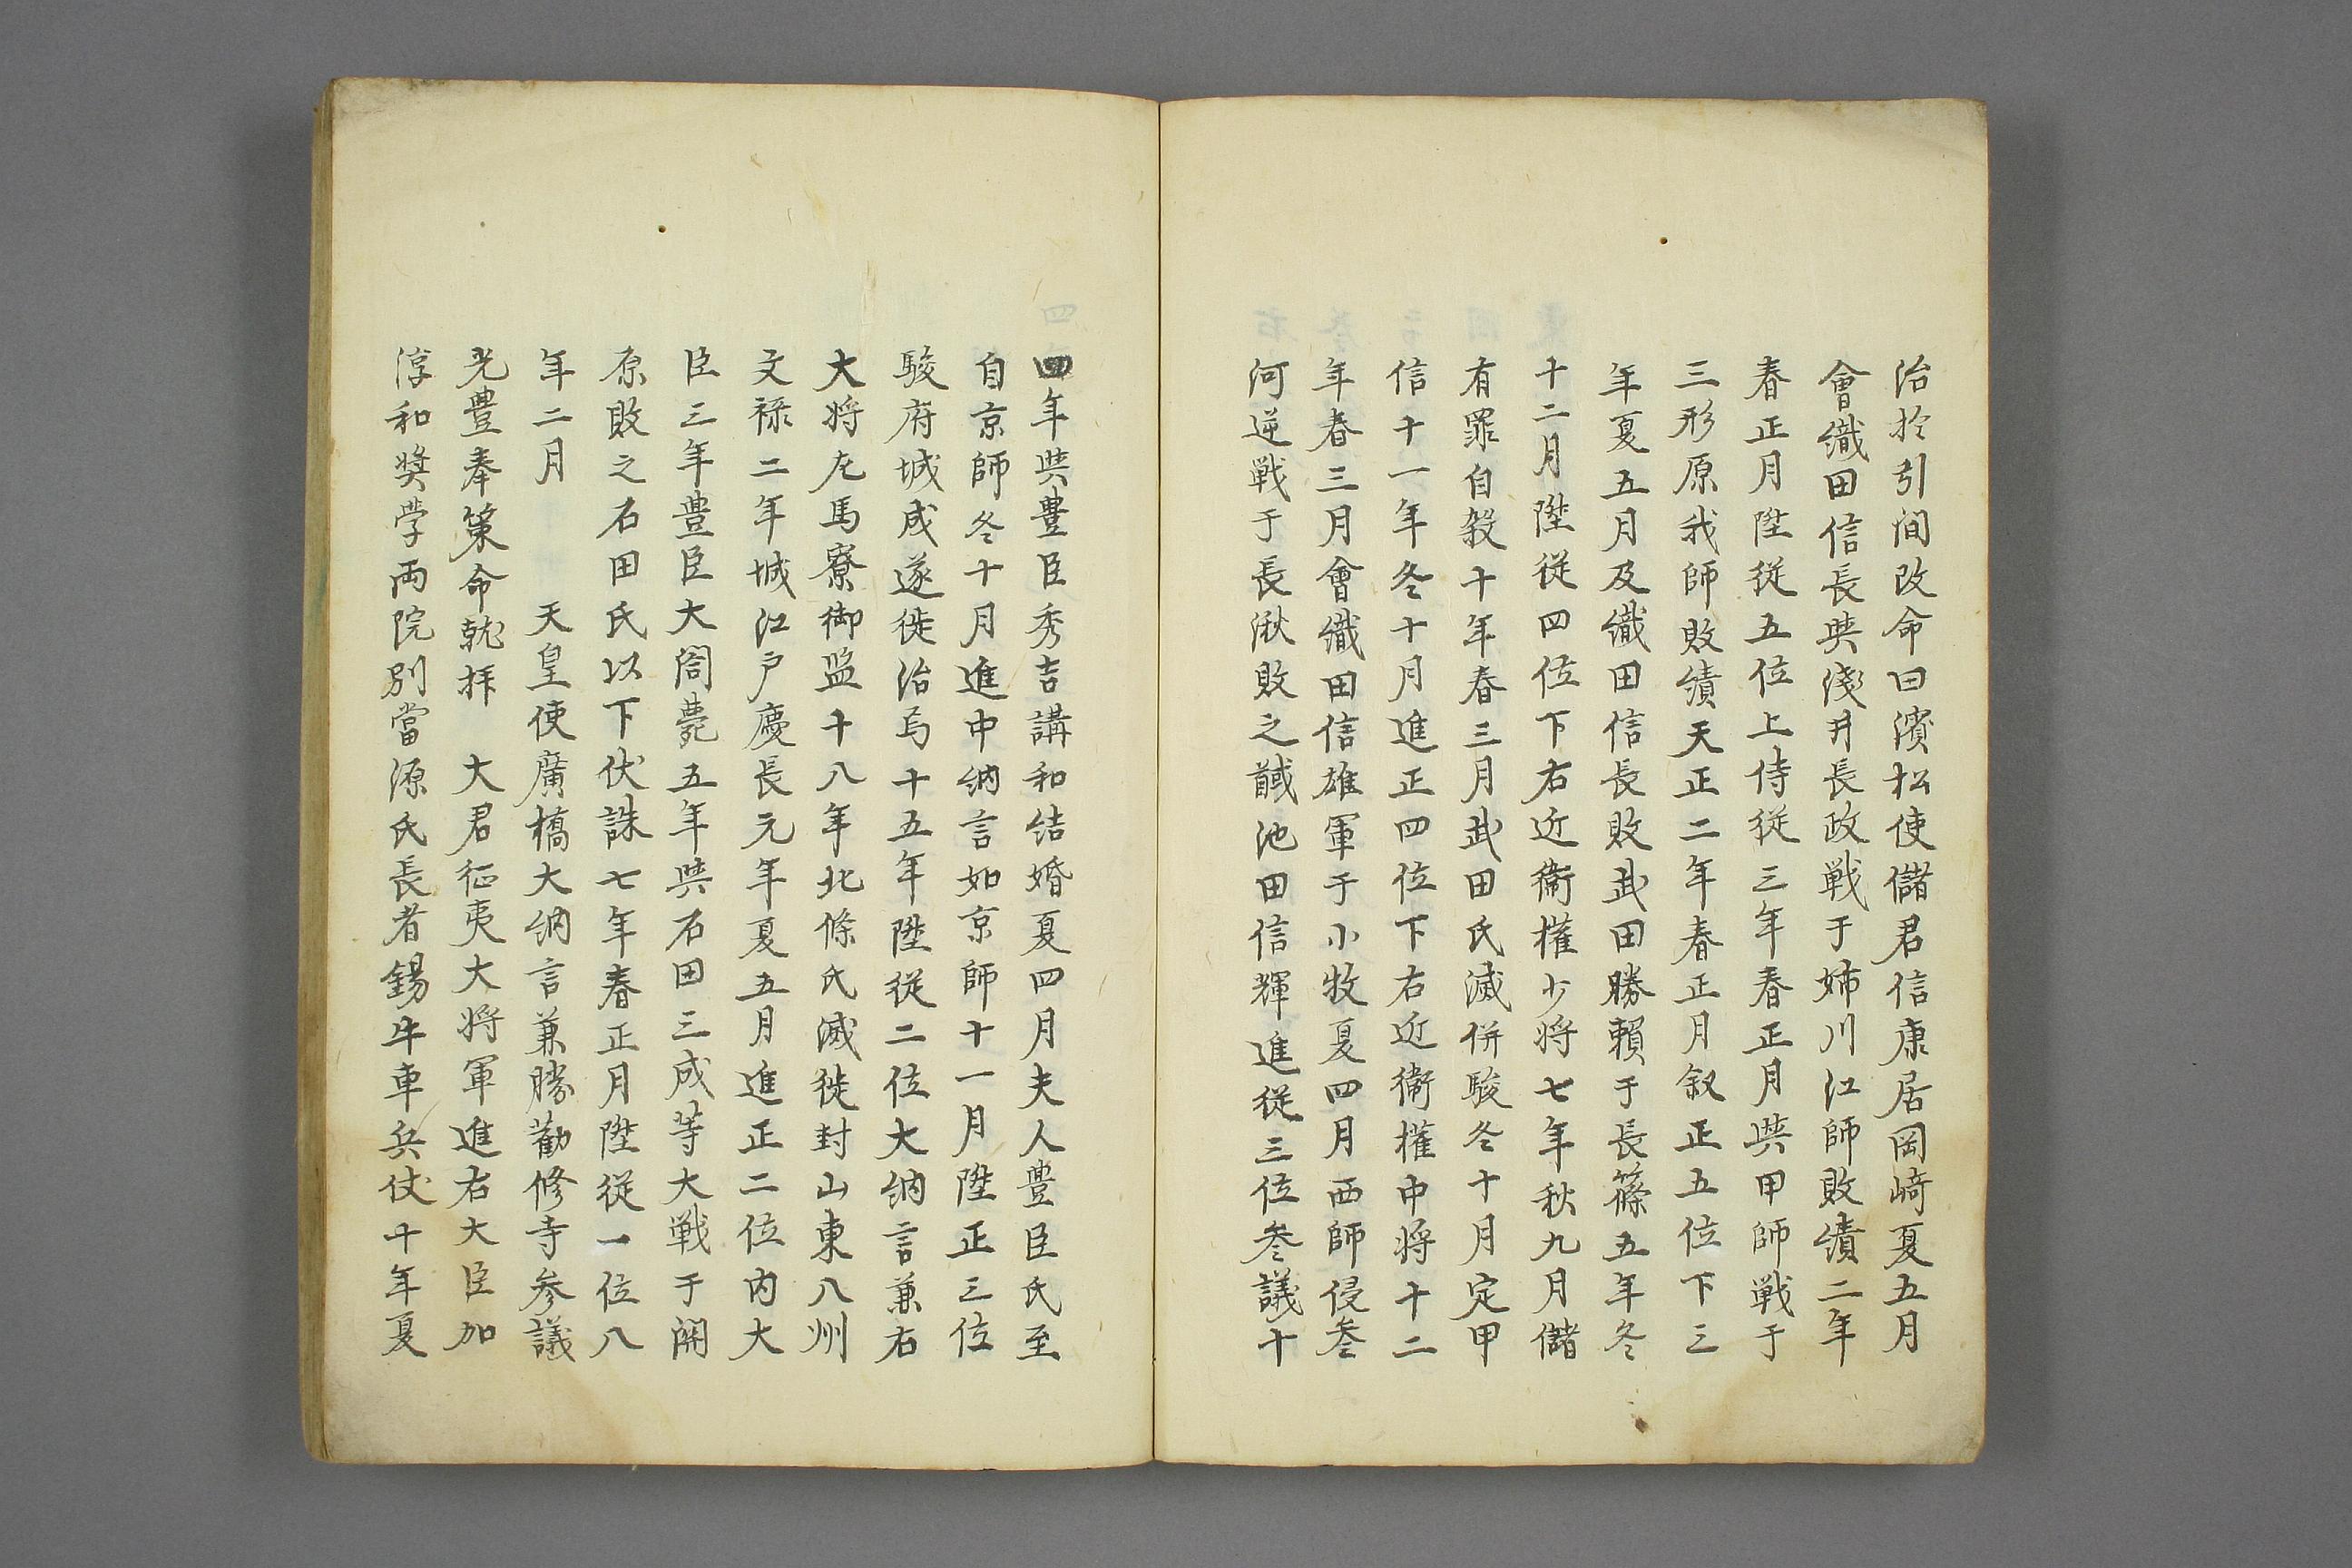 治於引間改命曰濱松使儲君信康居岡﨑夏五月
會織田信長與淺井長政戦于姉川江師敗績二年
春正月陞従五位上侍従三年春正月與甲師戦于
三形原我師敗績天正二年春正月叙正五位下三
年夏五月及織田信長敗武田勝頼于長篠五年冬
十二月陞従四位下右近衛権少将七年秋九月儲
有罪自殺十年春三月武田氏滅併駿冬十月定甲
信十一年冬十月進正四位下右近衛権中将十二
年春三月會織田信雄軍于小牧夏四月西師侵叁
河逆戦于長湫敗之馘池田信輝進従三位叁議十
四年與豊臣秀吉講和結婚夏四月夫人豊臣氏至
自京師冬十月進中納言如京師十一月陞正三位
駿府城成遂徙治焉十五年陞従二位大納言兼右
大将左馬寮御監十八年北條氏滅徙封山東八州
文禄二年城江戸慶長元年夏五月進正二位内大
臣三年豊臣大閤薨五年與石田三成等大戦于関
原敗之石田氏以下伏誅七年春正月陞従一位八
年二月　天皇使廣橋大納言兼勝勧修寺参議
光豊奉策命就拝　大君征夷大将軍進右大臣加
淳和奨学両院別當源氏長者錫牛車兵仗十年夏